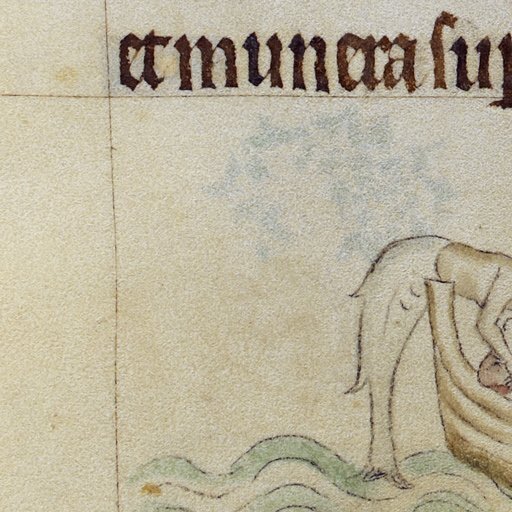 et munera sup